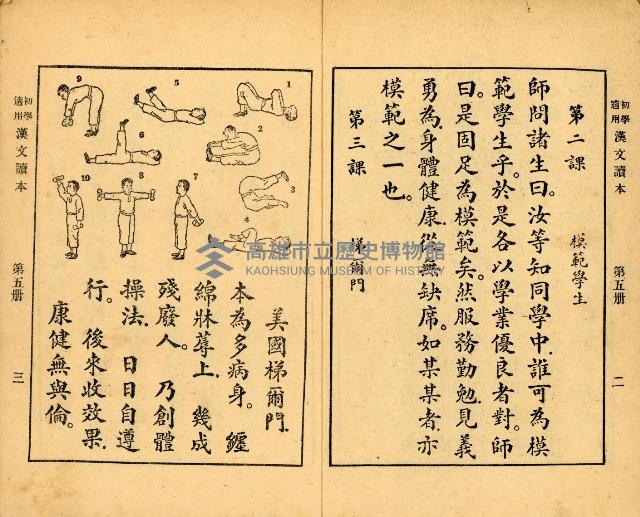 初學適用 漢文讀本 第五册 二
第二課 模範學生
師問諸生曰。汝等知同學中、誰可為模
範學生乎。於是各以學業優良者對。師
曰。是固足為模範矣。然服務勤勉、見義
勇為、身體健康、從無缺席。如某某者、亦
模範之一也。
第三課 梯爾門
美國梯爾門、
本為多病身。纏
綿牀蓐上、幾成
殘廢人。乃創體
操法、日日自遵
行。後來收效果、
康健無與倫。
1
2
3
4
5
6
7
8
9
10
初學適用 漢文讀本 第五册 三
高雄市立歷史博物館
KAOHSIUNG MUSEUM OF HISTORY